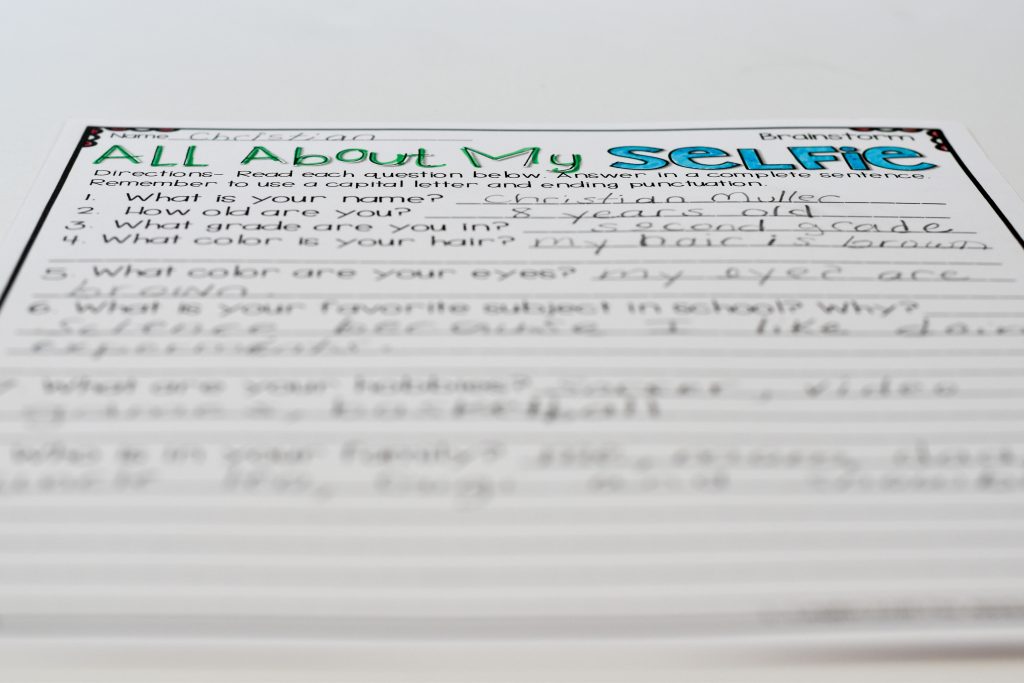 Name Christian Brainstorm
All About My Selfie
Directions- Read each question below. Answer in a complete sentence.
Remember to use a capital letter and ending punctuation.
1. What is your name? Christian Muller
2. How old are you? 8 years old
3. What grade are you in? second grade
4. What color is your hair? my hair is brown
5. What color are your eyes? my eyes are
brown.
6. What is your favorite subject in school? Why?
science because I like doin
experiments.
What are your hobbies? soccer, video
games, basketball
Who is in your family? me,